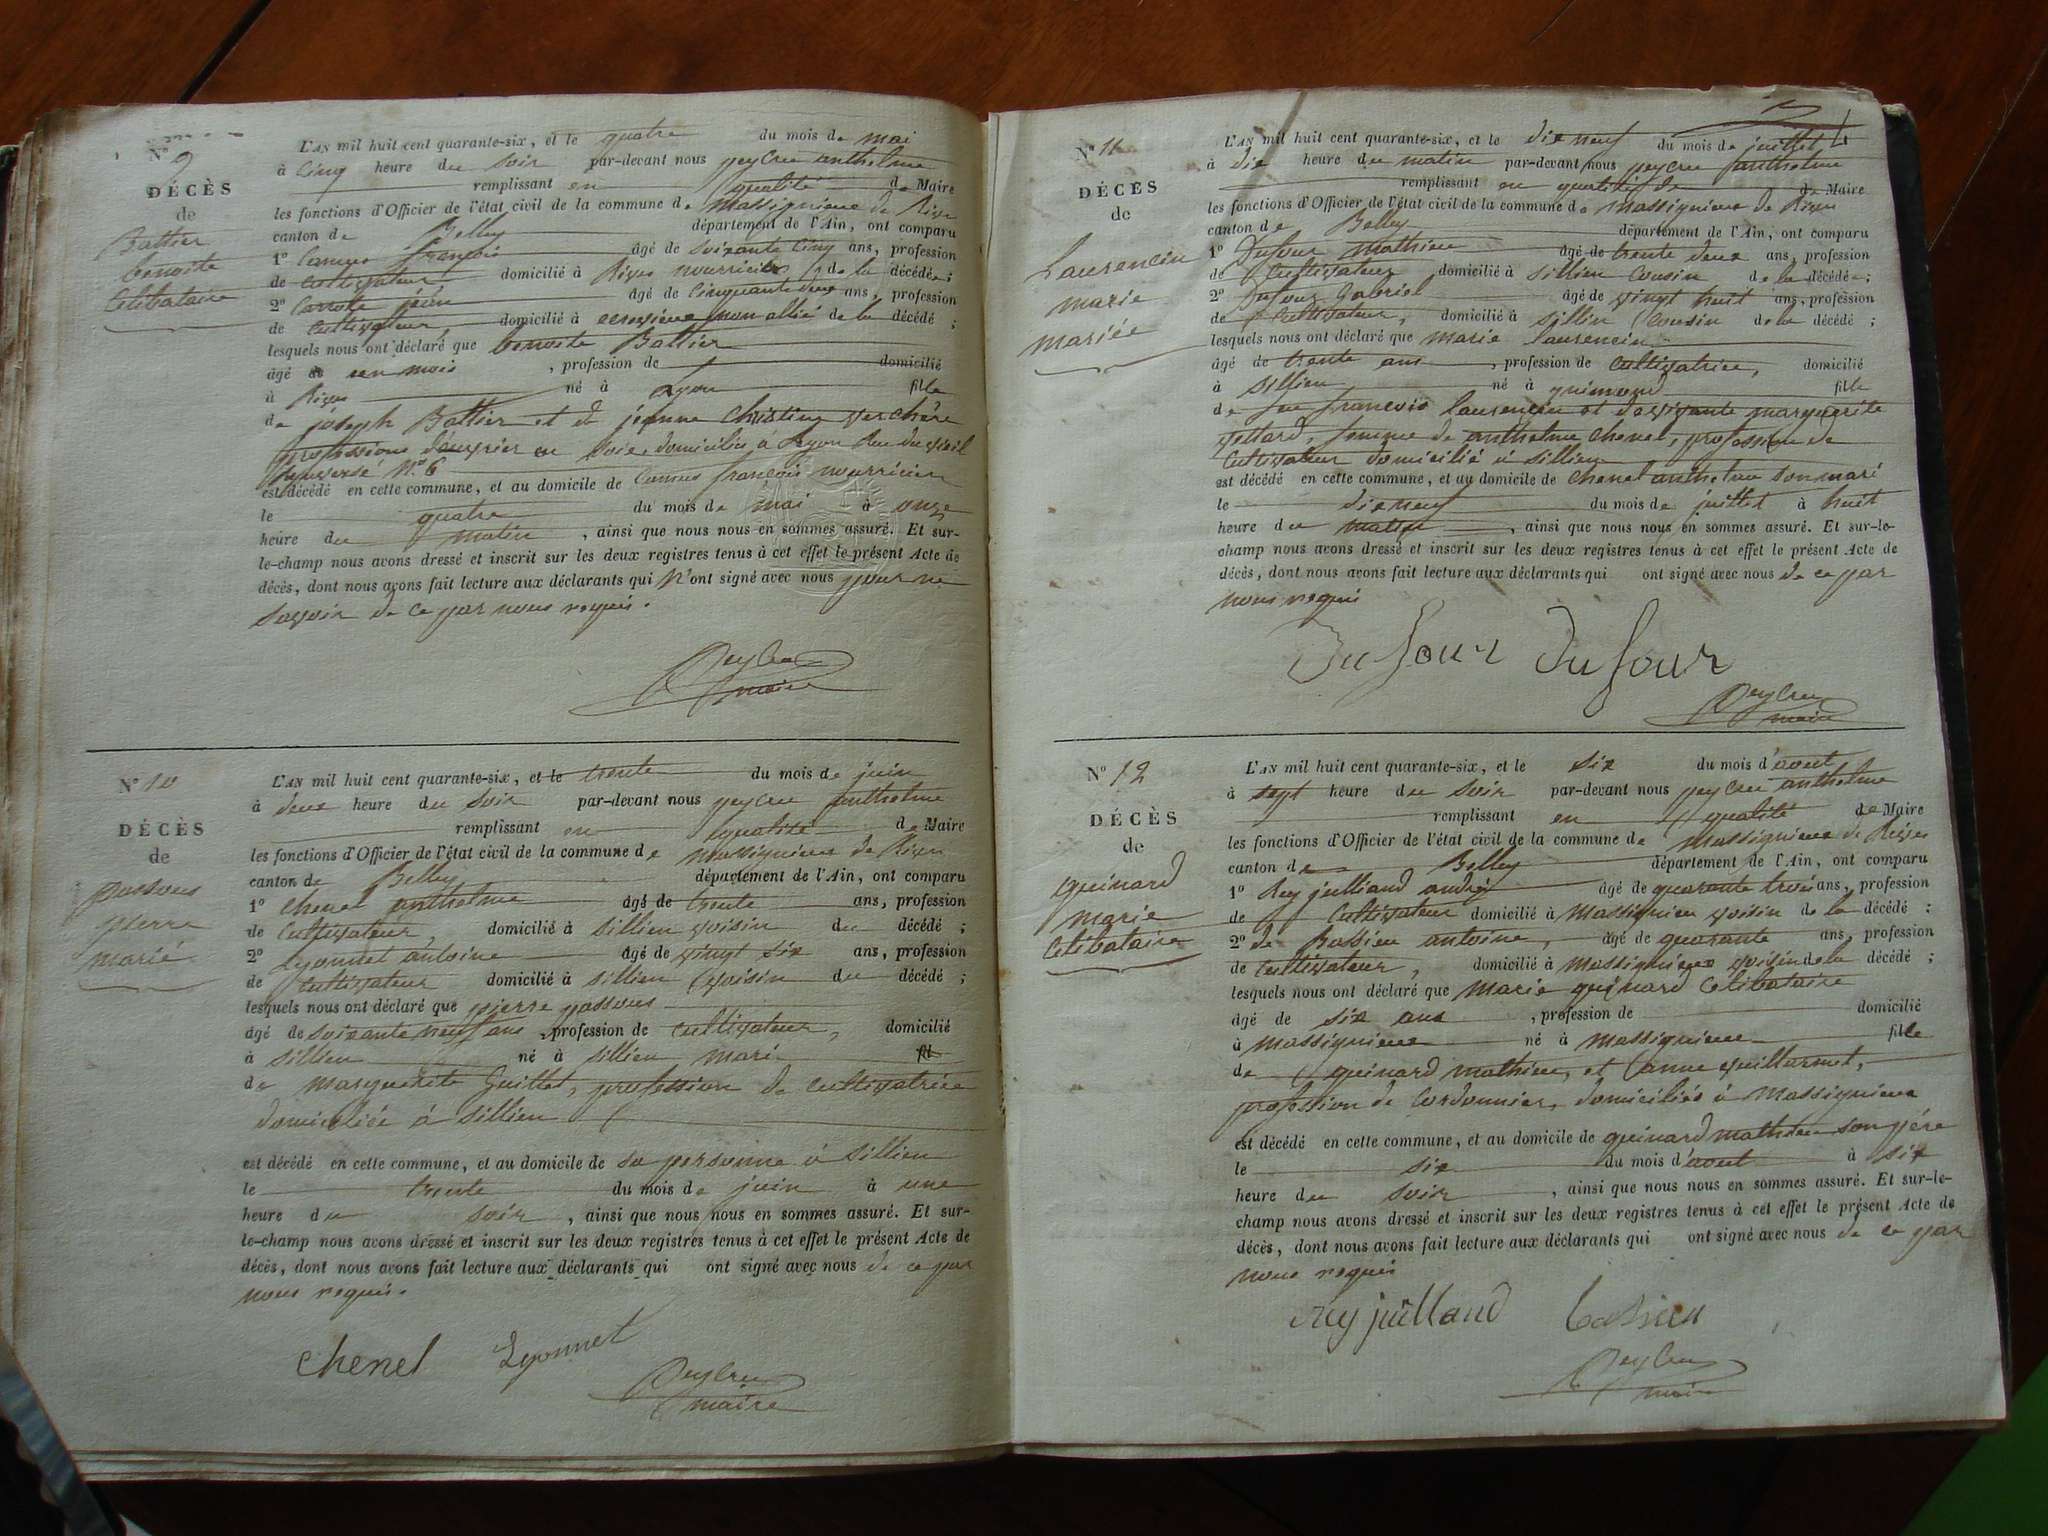 N° 9
DÉCÈS
de
Battier
benoite
Celibataire
L'AN mil huit cent quarante-six, et le quatre du mois de mai
à cinq heure du soir par-devant nous peycru anthelme
remplissant en qualité de Maire
les fonctions d'Officier de l'état civil de la commune de massignieux de Rives
canton de Belley département de l'Ain, ont comparu
1° Camus françois âgé de soixante cinq ans, profession
de cultivateur domicilié à Rives nourricier de la décédée;
2° Carrotte jean âgé de cinquante deux ans, profession
de cultivateur, domicilié à non allié de la décédé;
lesquels nous ont déclaré que benoite Battier
âgé de un mois, profession de domicilié
à Rives né à Lyon fille
de joseph Battier et de jeanne christine verchère
professions d'ouvrier en soie domicilies à Lyon Rue du vieil
renversé N° 6
est décédé en cette commune, et au domicile de Camus françois nourricier
le quatre du mois de mai à onze
heure du matin, ainsi que nous nous en sommes assuré. Et sur-
le-champ nous avons dressé et inscrit sur les deux registres tenus à cet effet le présent Acte de
décès, dont nous avons fait lecture aux déclarants qui N'ont signé avec nous pour ne
savoir de ce par nous requis.
Peycru
maire
N° 10
DÉCÈS
de
passous
pierre
marié
L'AN mil huit cent quarante-six, et le trente du mois de juin
à deux heure du soir par-devant nous peycru anthelme
remplissant en qualité de Maire
les fonctions d'Officier de l'état civil de la commune de massignieux de Rives
canton de Belley département de l'Ain, ont comparu
1° Chenel anthelme âgé de trente ans, profession
de Cultivateur, domicilié à sillien voisin du décédé;
2° Lyonnet antoine âgé de vingt six ans, profession
de cultivateur domicilié à sillien voisin du décédé;
lesquels nous ont déclaré que pierre passous
âgé de soixante neuf ans, profession de cultivateur, domicilié
à sillien né à sillien mari fil
de marguerite Guillet, profession de cultivatrice
domiciliée à sillien
est décédé en cette commune, et au domicile de sa personne à sillien
le trente du mois de juin à une
heure du soir, ainsi que nous nous en sommes assuré. Et sur-
le-champ nous avons dressé et inscrit sur les deux registres tenus à cet effet le présent Acte de
décès, dont nous avons fait lecture aux déclarants qui ont signé avec nous de ce par
nous requis.
Chenel Lyonnet
Peycru
maire
N° 11
DÉCÈS
de
Laurencin
marie
mariée
L'AN mil huit cent quarante-six, et le dix neuf du mois de juillet
à dix heure du matin par-devant nous peycru anthelme
remplissant en qualité de de Maire
les fonctions d'Officier de l'état civil de la commune de massignieux de Rives
canton de Belley département de l'Ain, ont comparu
1° Dufour mathieu âgé de trente deux ans, profession
de Cultivateur domicilié à sillien cousin de la décédée;
2° Dufour Gabriel âgé de vingt huit ans, profession
de Cultivateur, domicilié à sillin cousin de la décédé;
lesquels nous ont déclaré que marie laurencin
âgé de trente ans, profession de cultivatrice, domicilié
à sillien né à fille
de feu francois laurencin et de vivante marguerite
femme de anthelme chenel, profession de
cultivateur domicilié à sillien
est décédé en cette commune, et au domicile de chenel anthelme son mari
le dix neuf du mois de juillet à huit
heure du matin, ainsi que nous nous en sommes assuré. Et sur-le-
champ nous avons dressé et inscrit sur les deux registres tenus à cet effet le présent Acte de
décès, dont nous avons fait lecture aux déclarants qui ont signé avec nous de ce par
nous requi
Dufour Dufour
Peycru
maire
N° 12
DÉCÈS
de
guinard
marie
Celibataire
L'AN mil huit cent quarante-six, et le six du mois d'avout
à sept heure du soir par-devant nous peycru anthelme
remplissant en qualité de Maire
les fonctions d'Officier de l'état civil de la commune de massignieux de Rives
canton de Belley département de l'Ain, ont comparu
1° Rey julliand andré âgé de quarante trois ans, profession
de Cultivateur domicilié à Massignieu voisin de la décédé;
2° de Bassieu antoine, âgé de quarante ans, profession
de cultivateur, domicilié à massignieux voisin de la décédé;
lesquels nous ont déclaré que marie guinard Celibataire
âgé de six ans, profession de domicilié
à massignieux né à massignieux fille
de guinard mathieu, et anne vuillermet,
profession de Cordonnier, domiciliés à Massignieux
est décédé en cette commune, et au domicile de guinard mathieu son père
le six du mois d'avout à six
heure du soir, ainsi que nous nous en sommes assuré. Et sur-le-
champ nous avons dressé et inscrit sur les deux registres tenus à cet effet le présent Acte de
décès, dont nous avons fait lecture aux déclarants qui ont signé avec nous de ce par
nous requis
rey juilland bassieu
Peycru
maire